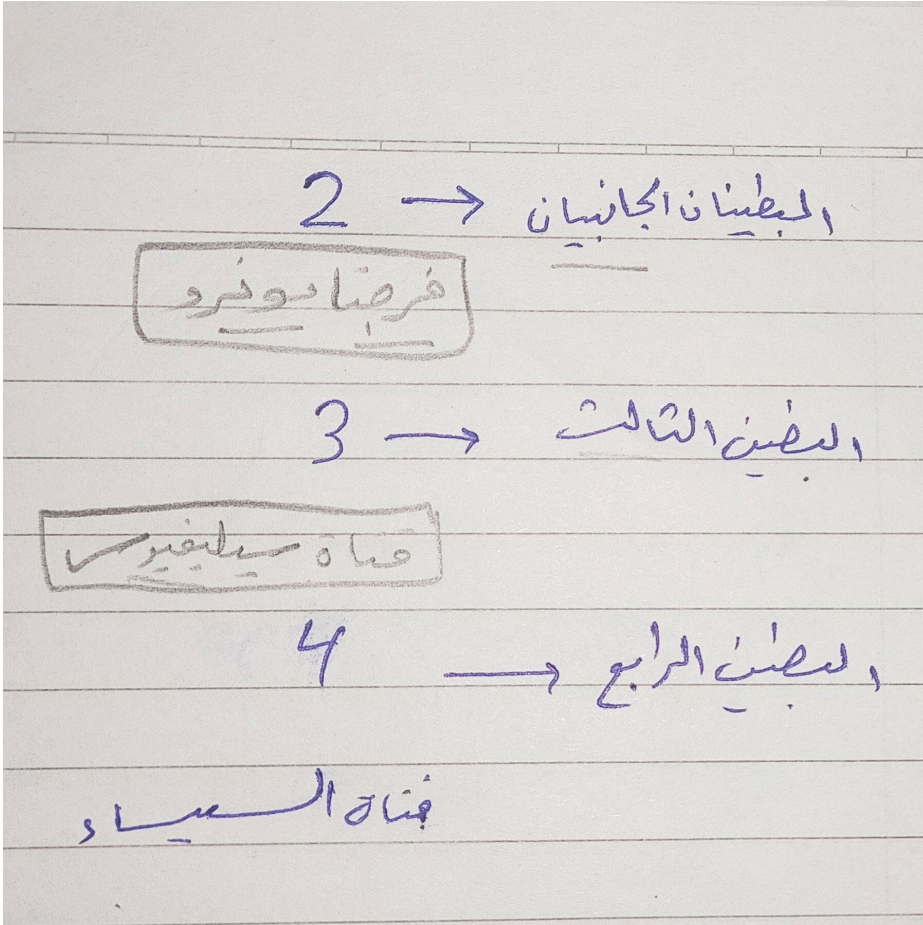 البطينان الجانبيان → 2
فرجتا مونرو
البطين الثالث → 3
قناة سيلفيوس
البطين الرابع → 4
قناة السيساء